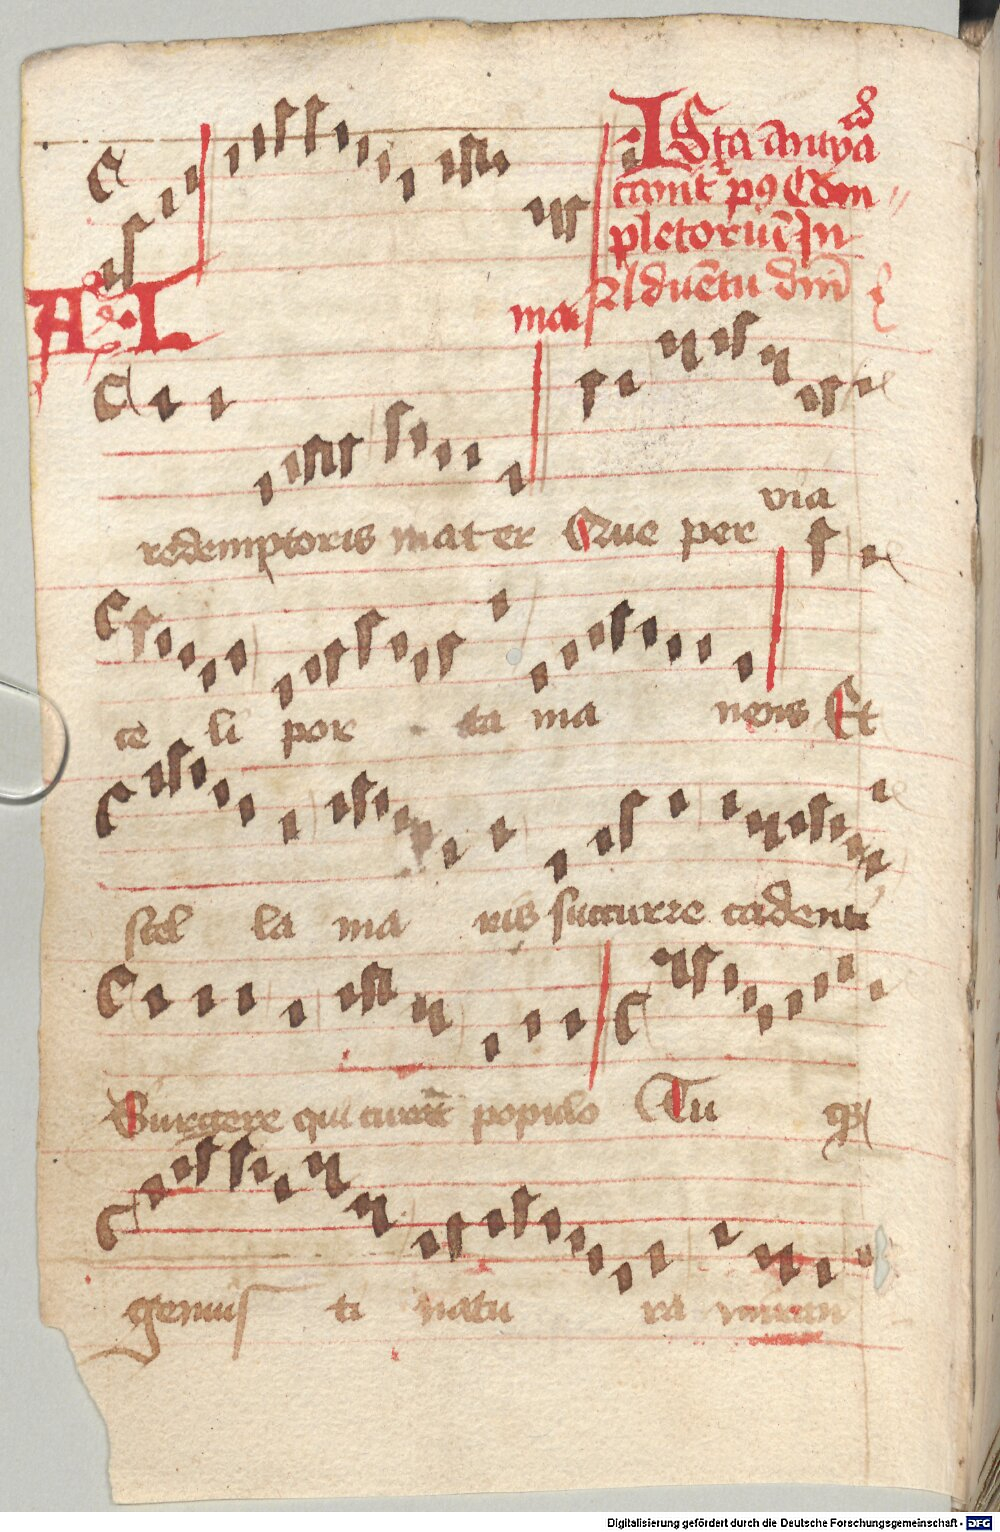 ISta antyā
cant p9 Com
pletoriū In
Aduētu dm̄
AL
ma
redemptoris mater Que per via
celi porta manens Et
stella maris succurre cadenti
Surgere qui curat populo Tu q̄
genuisti natura miran
Digitalisierung gefördert durch die Deutsche Forschungsgemeinschaft - DFG